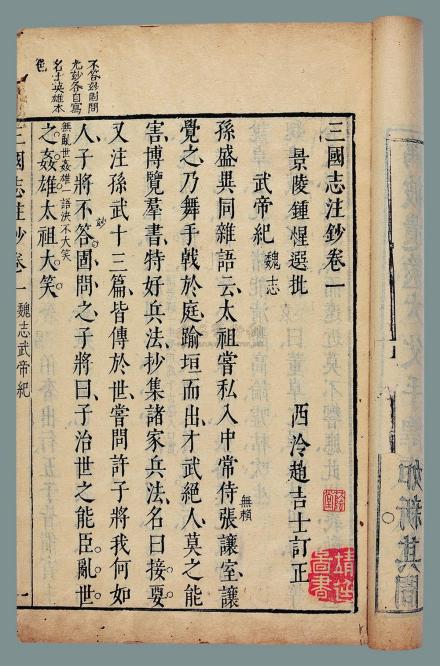 三國志注鈔卷一
景陵鍾惺選批
西泠趙吉士訂正
武帝紀 魏志
孫盛異同雜語云太祖嘗私入中常侍張讓室讓
無賴
覺之乃舞手戟於庭踰垣而出才武絕人莫之能
害博覽羣書特好兵法抄集諸家兵法名曰接要
又注孫武十三篇皆傳於世嘗問許子將我何如
人子將不答固問之子將曰子治世之能臣亂世
妙
之姦雄太祖大笑
無亂世姦雄一語決不大笑
不答妙固問
尤妙各自寫
名士英雄本
色
三國志注鈔卷一 魏志武帝紀 一
靖逸圖書
如新其間